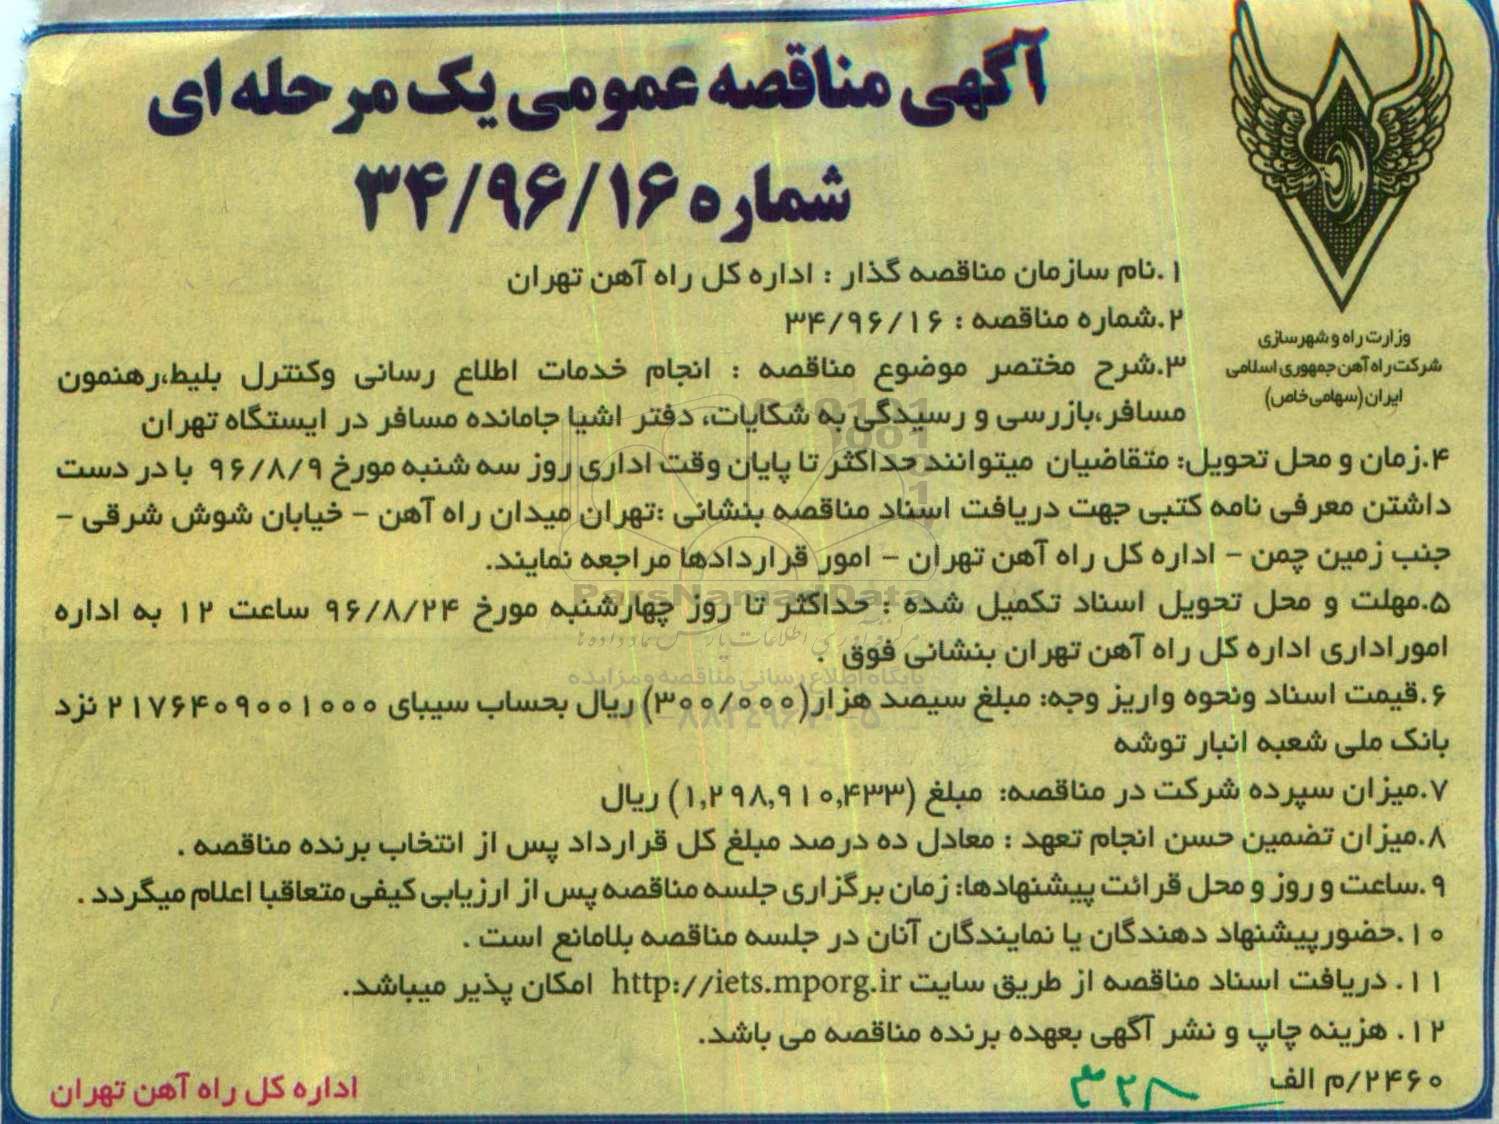 آگهی مناقصه عمومی یک مرحله ای
شماره ۳۴/۹۶/۱۶
وزارت راه و شهرسازی
شرکت راه آهن جمهوری اسلامی
ایران (سهامی خاص)
۱.نام سازمان مناقصه گذار : اداره کل راه آهن تهران
۲.شماره مناقصه : ۳۴/۹۶/۱۶
۳.شرح مختصر موضوع مناقصه : انجام خدمات اطلاع رسانی وکنترل بلیط،رهنمون
مسافر،بازرسی و رسیدگی به شکایات، دفتر اشیا جامانده مسافر در ایستگاه تهران
۴.زمان و محل تحویل: متقاضیان میتوانند حداکثر تا پایان وقت اداری روز سه شنبه مورخ ۹۶/۸/۹ با در دست
داشتن معرفی نامه کتبی جهت دریافت اسناد مناقصه بنشانی :تهران میدان راه آهن – خیابان شوش شرقی –
جنب زمین چمن – اداره کل راه آهن تهران – امور قراردادها مراجعه نمایند.
۵.مهلت و محل تحویل اسناد تکمیل شده : حداکثر تا روز چهارشنبه مورخ ۹۶/۸/۲۴ ساعت ۱۲ به اداره
اموراداری اداره کل راه آهن تهران بنشانی فوق .
۶.قیمت اسناد ونحوه واریز وجه: مبلغ سیصد هزار(۳۰۰/۰۰۰) ریال بحساب سیبای ۲۱۷۶۴۰۹۰۰۱۰۰۰ نزد
بانک ملی شعبه انبار توشه
۷.میزان سپرده شرکت در مناقصه: مبلغ (۱,۲۹۸,۹۱۰,۴۳۳) ریال
۸.میزان تضمین حسن انجام تعهد : معادل ده درصد مبلغ کل قرارداد پس از انتخاب برنده مناقصه .
۹.ساعت و روز و محل قرائت پیشنهادها: زمان برگزاری جلسه مناقصه پس از ارزیابی کیفی متعاقبا اعلام میگردد .
۱۰.حضورپیشنهاد دهندگان یا نمایندگان آنان در جلسه مناقصه بلامانع است .
۱۱. دریافت اسناد مناقصه از طریق سایت http://iets.mporg.ir امکان پذیر میباشد.
۱۲. هزینه چاپ و نشر آگهی بعهده برنده مناقصه می باشد.
۲۴۶۰/م الف
۳۲۸
اداره کل راه آهن تهران
ParsNamadData
پایگاه اطلاع رسانی مناقصه و مزایده